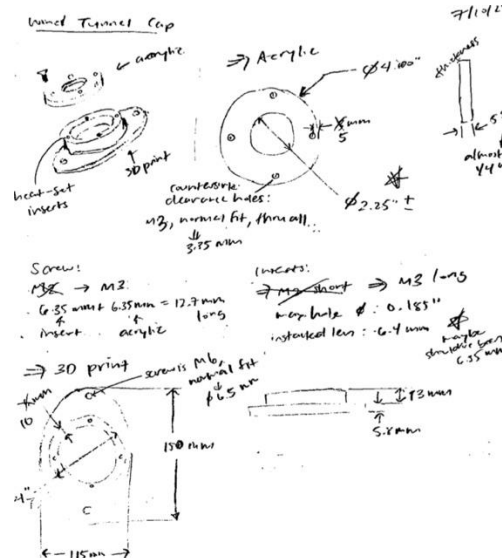 Wind Tunnel Cap
7/10/2
acrylic
3D print
heat-set
inserts
⇒ Acrylic
ø4.100"
mm
5
countersink
clearance holes:
M3, normal fit, thru all
3.35 mm
ø2.25" ±
thickness
5
almost
1/4"
Screw:
M2 → M3
6.35 mm + 6.35 mm = 12.7 mm
long
insert
acrylic
Inserts:
→ M2 short ⇒ M3 long
max hole ø: 0.185"
installed len: 6.4 mm
maybe
6.35 mm
⇒ 3D print
screw is M6,
normal fit
ø6.5 mm
mm
10
4"
150 mm
C
115 mm
13 mm
5.8 mm